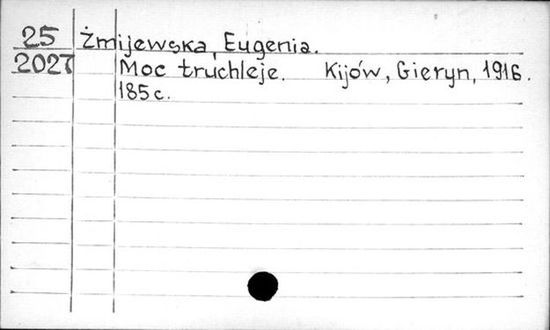 25 Żmijewska, Eugenia.
2027 Moc truchleje. Kijów, Gieryn, 1916.
185 c.